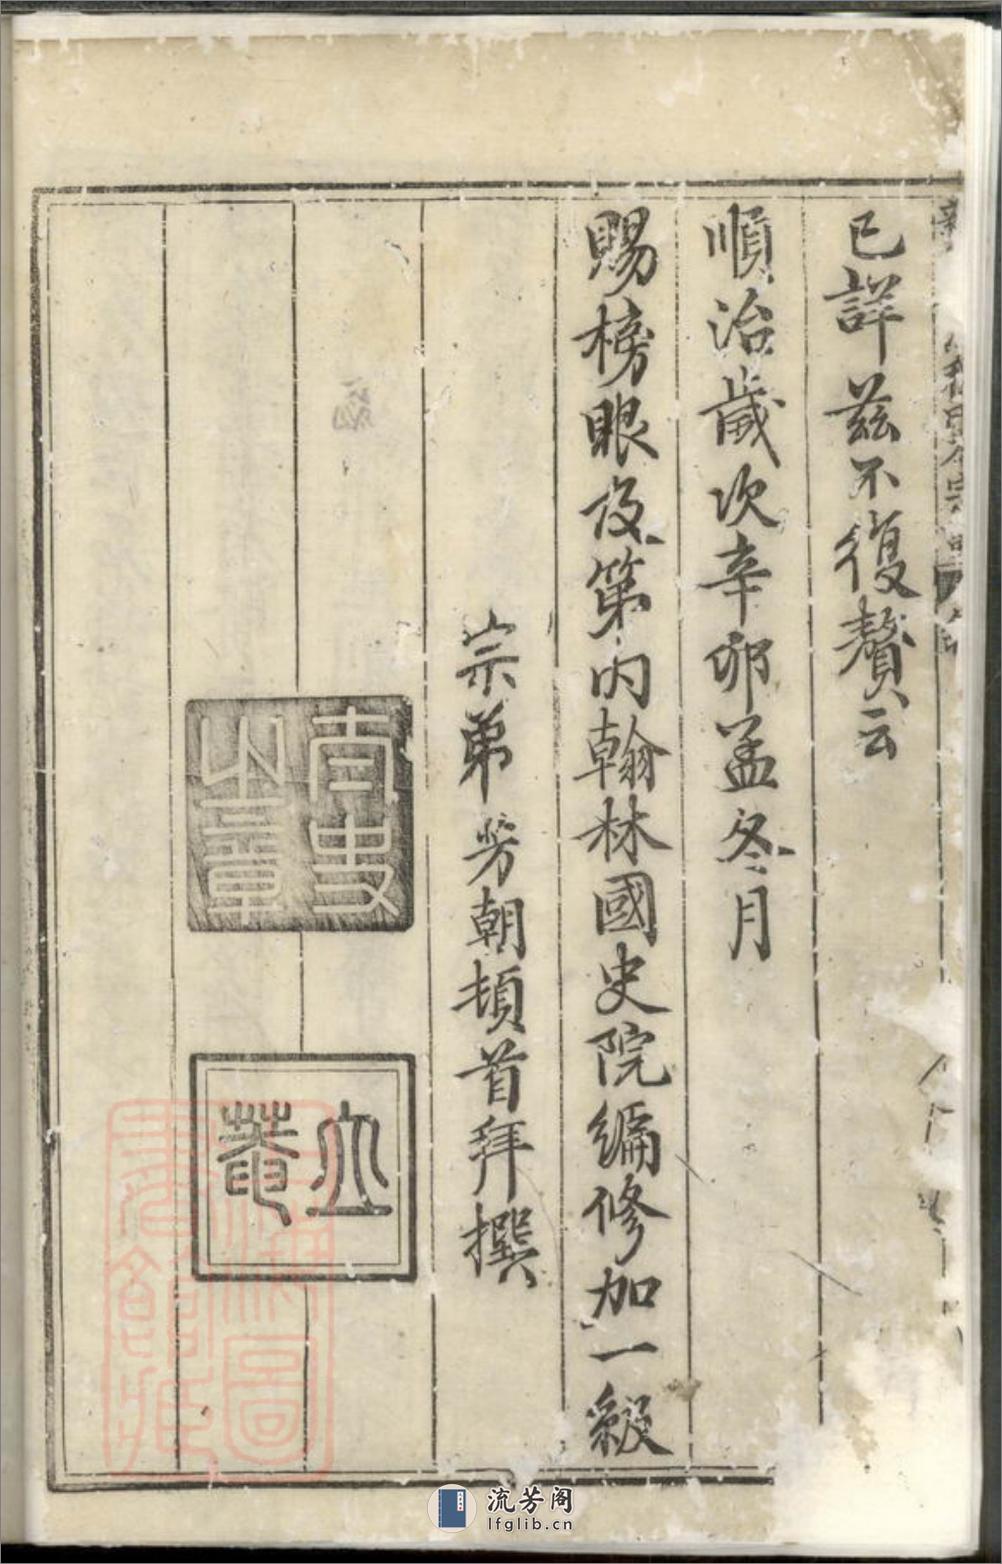 已詳茲不復贅云
順治歲次辛卯孟冬月
賜榜眼及第内翰林國史院編修加一級
宗弟芳朝頓首拜撰
之章
立菴
上海圖書館藏
流芳阁
lfglib.cn